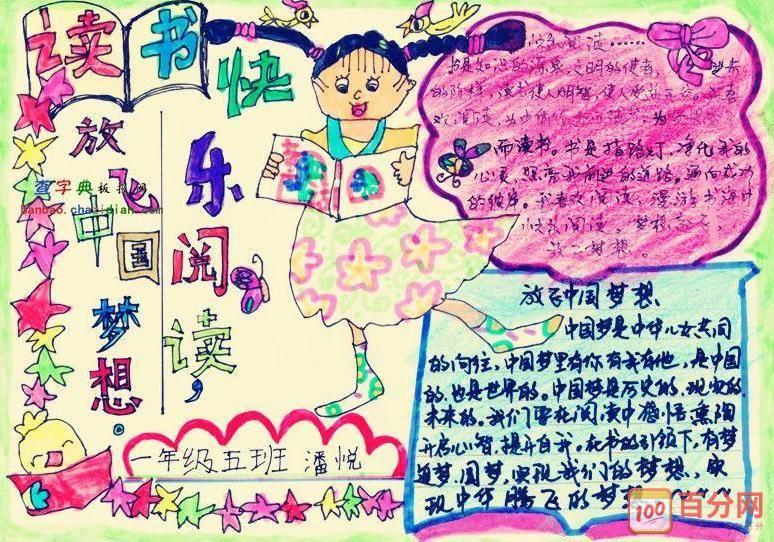 读书
快乐阅读,
放飞中国梦想.
查字典板报网
banbao.chazidian.com
快乐阅读……
书是知识的源泉,文明的使者,
的阶梯,读书使人明智,使人
而读书。书是指路灯,净化我的
的彼岸。我喜欢阅读,漫游书海中
快乐阅读,梦想
放飞梦想。
放飞中国梦想.
中国梦是中华儿女共同
的向往,中国梦里有你有我有他,是中国
的.也是世界的。中国梦是历史的.现实的.
未来的。我们要在阅读中感悟熏陶
开启心智.提升自我。在书的引领下,有梦
追梦.圆梦,实现我们的梦想.,实
现中华腾飞的梦
一年级五班 潘悦
100 百分网